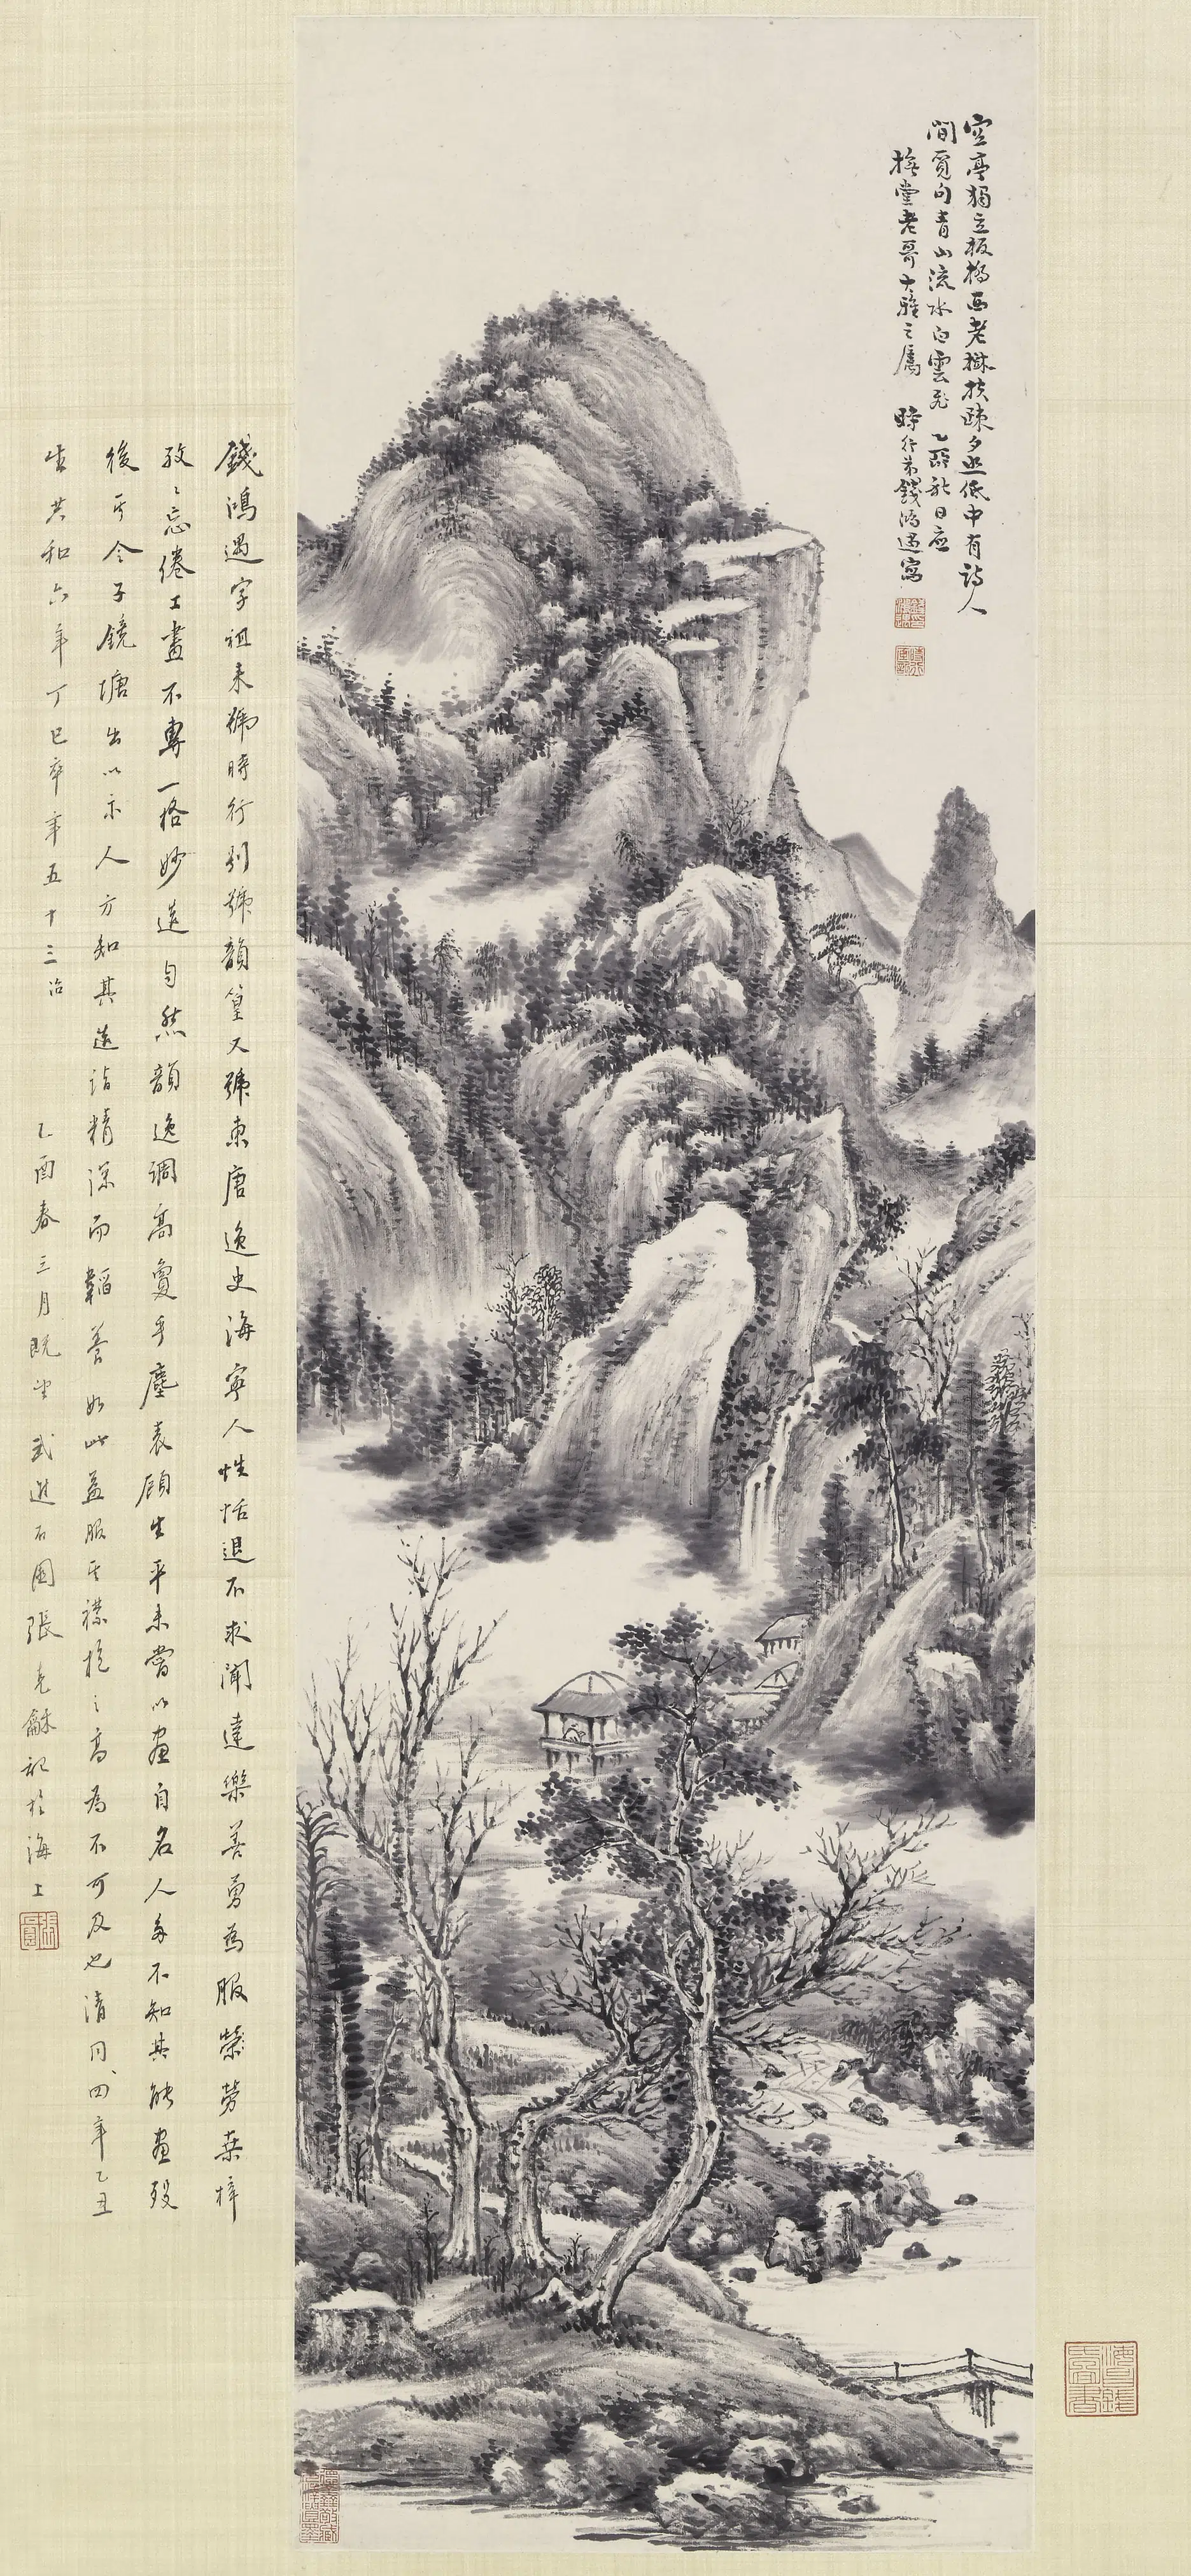 空亭獨立板橋西老樹扶疎夕照低中有詩人
閒覓句青山流水白雲飛 乙卯秋日應
橅堂老哥大雅之屬 時行弟錢鴻遇寫
錢鴻遇字祖來號時行別號韻篁又號東唐逸史海寧人性恬退不求聞達樂善勇為服縈勞桑梓
孜〻忘倦工畫不專一格妙造自然韻逸調高敻乎塵表顧生平未嘗以畫自名人多不知其能畫歿
後哲令子鏡塘出以示人方知其造詣精深而韜養如此益服其襟抱之高為不可及也清同治四年乙丑
生共和六年丁巳卒年五十三 乙酉春三月既望武進石園張克龢記於海上